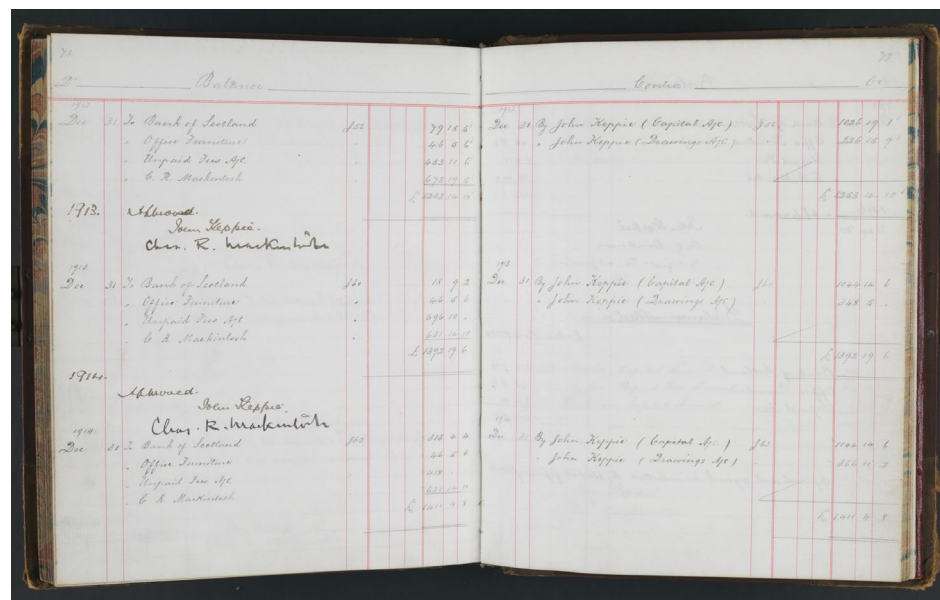 72
Dr Balance
1912
Dec 31 To Bank of Scotland J52 79 18 5
" Office Furniture " 46 5 6
" Unpaid Fees A/c " 453 11 6
" C. R. Mackintosh " 673 19 5
£ 1253 14 10
1913. Approved.
John Keppie.
Chas. R. Mackintosh
1913
Dec 31 To Bank of Scotland J60 18 9 2
" Office Furniture " 46 5 6
" Unpaid Fees A/c " 696 10 .
" C. R. Mackintosh " 631 14 10
£ 1392 19 6
1914.
Approved.
John Keppie.
Chas. R. Mackintosh
1914
Dec 31 To Bank of Scotland 315 4 4
" Office Furniture 46 5 6
" Unpaid Fees A/c 418
" C. R. Mackintosh 631 14 10
£ 1411 4 8
72
Contra Cr
1912
Dec 31 By John Keppie (Capital A/c) J52 1026 19 1
" John Keppie (Drawings A/c) 226 15 9
£ 1253 14 10
1913
Dec 31 By John Keppie (Capital A/c) J60 1044 14 6
" John Keppie (Drawings A/c) 348 5 .
£ 1392 19 6
1914
Dec 31 By John Keppie (Capital A/c) 1044 14 6
" John Keppie (Drawings A/c) 366 10 2
£ 1411 4 8